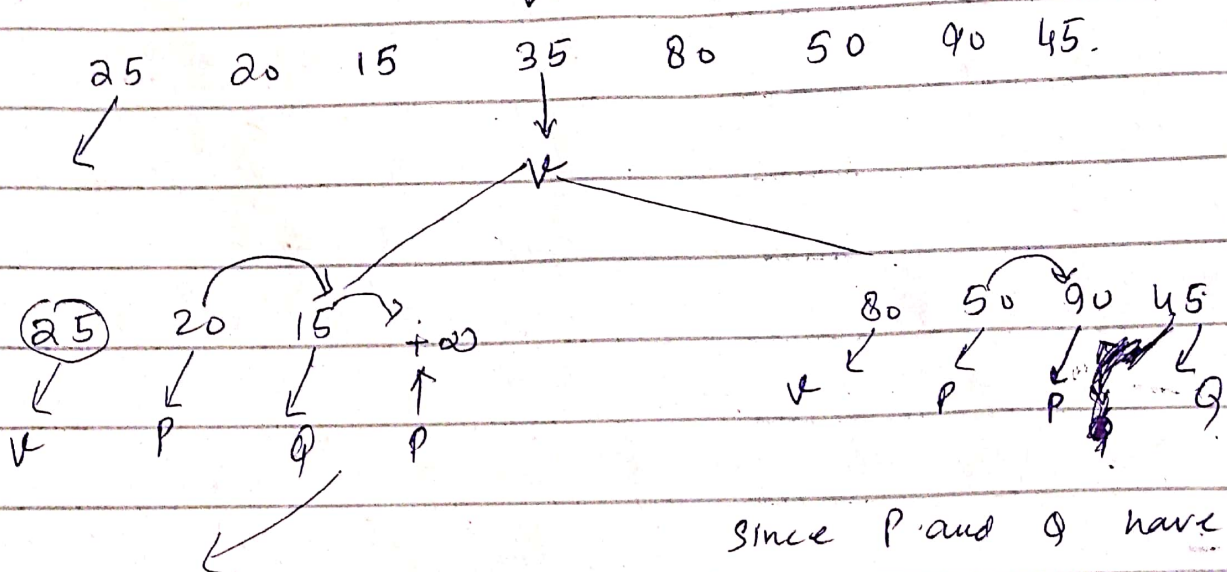 25 20 15 35 80 50 90 45.
V
25 20 15 +∞ 80 50 90 45
V P Q P V P P Q
Since P and Q have